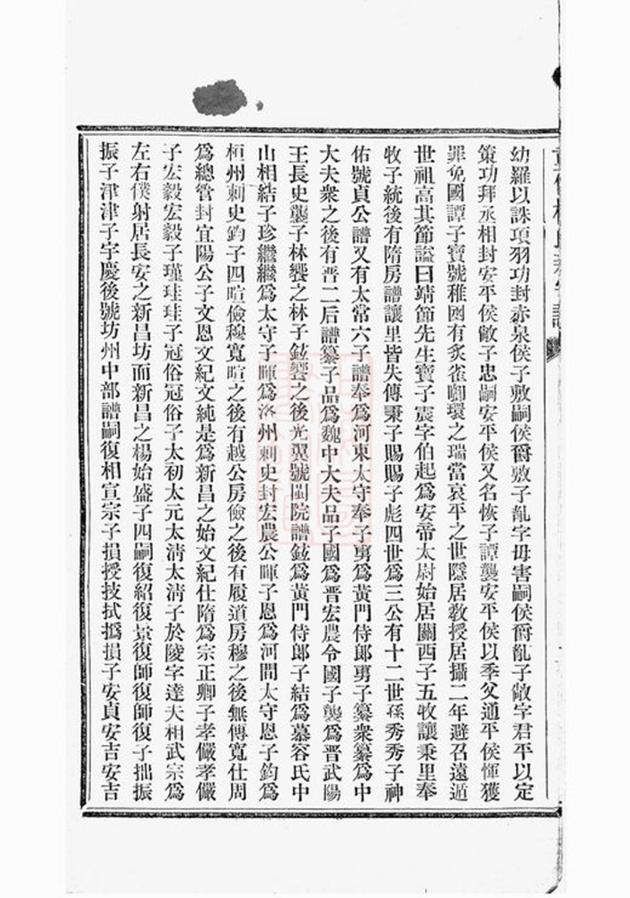 幼羅以誅項羽功封赤泉侯子敷嗣侯爵敷子胤字毋害嗣侯爵胤子敞字君平以定
策功拜丞相封安平侯敞子忠嗣安平侯又名恢子譚襲安平侯以季父通平侯惲獲
罪免國譚子寶號稚囦有炙雀啣環之瑞當哀平之世隱居敎授居攝二年避召遠遁
世祖高其節諡曰靖節先生寶子震字伯起爲安帝太尉始居關西子五牧讓秉里奉
牧子統後有隋房譜讓里皆失傳秉子賜賜子彪四世爲三公有十二世孫秀秀子神
佑號貞公譜又有太常六子譜奉爲河東太守奉子旉爲黃門侍郞旉子纂衆纂爲中
大夫衆之後有晋二后譜纂子品爲魏中大夫品子國爲晋宏農令國子襲爲晋武陽
王長史襲子林饗之林子鉉饗之後光翼號閩院譜鉉爲黃門侍郞子結爲慕容氏中
山相結子珍繼繼爲太守子暉爲洛州刺史封宏農公暉子恩爲河間太守恩子鈞爲
桓州刺史鈞子四暄儉穆寬暄之後有越公房儉之後有履道房穆之後無傳寬仕周
爲總管封宜陽公子文恩文紀文純是爲新昌之始文紀仕隋爲宗正卿子孝儼孝儼
子宏毅宏毅子瑾珪珪子冠俗冠俗子太初太元太清太清子於陵字達夫相武宗爲
左右僕射居長安之新昌坊而新昌之楊始盛子四嗣復紹復景復師復師復子拙振
振子津津子宇慶後號坊州中部譜嗣復相宣宗子損授技拭撝損子安貞安吉安吉